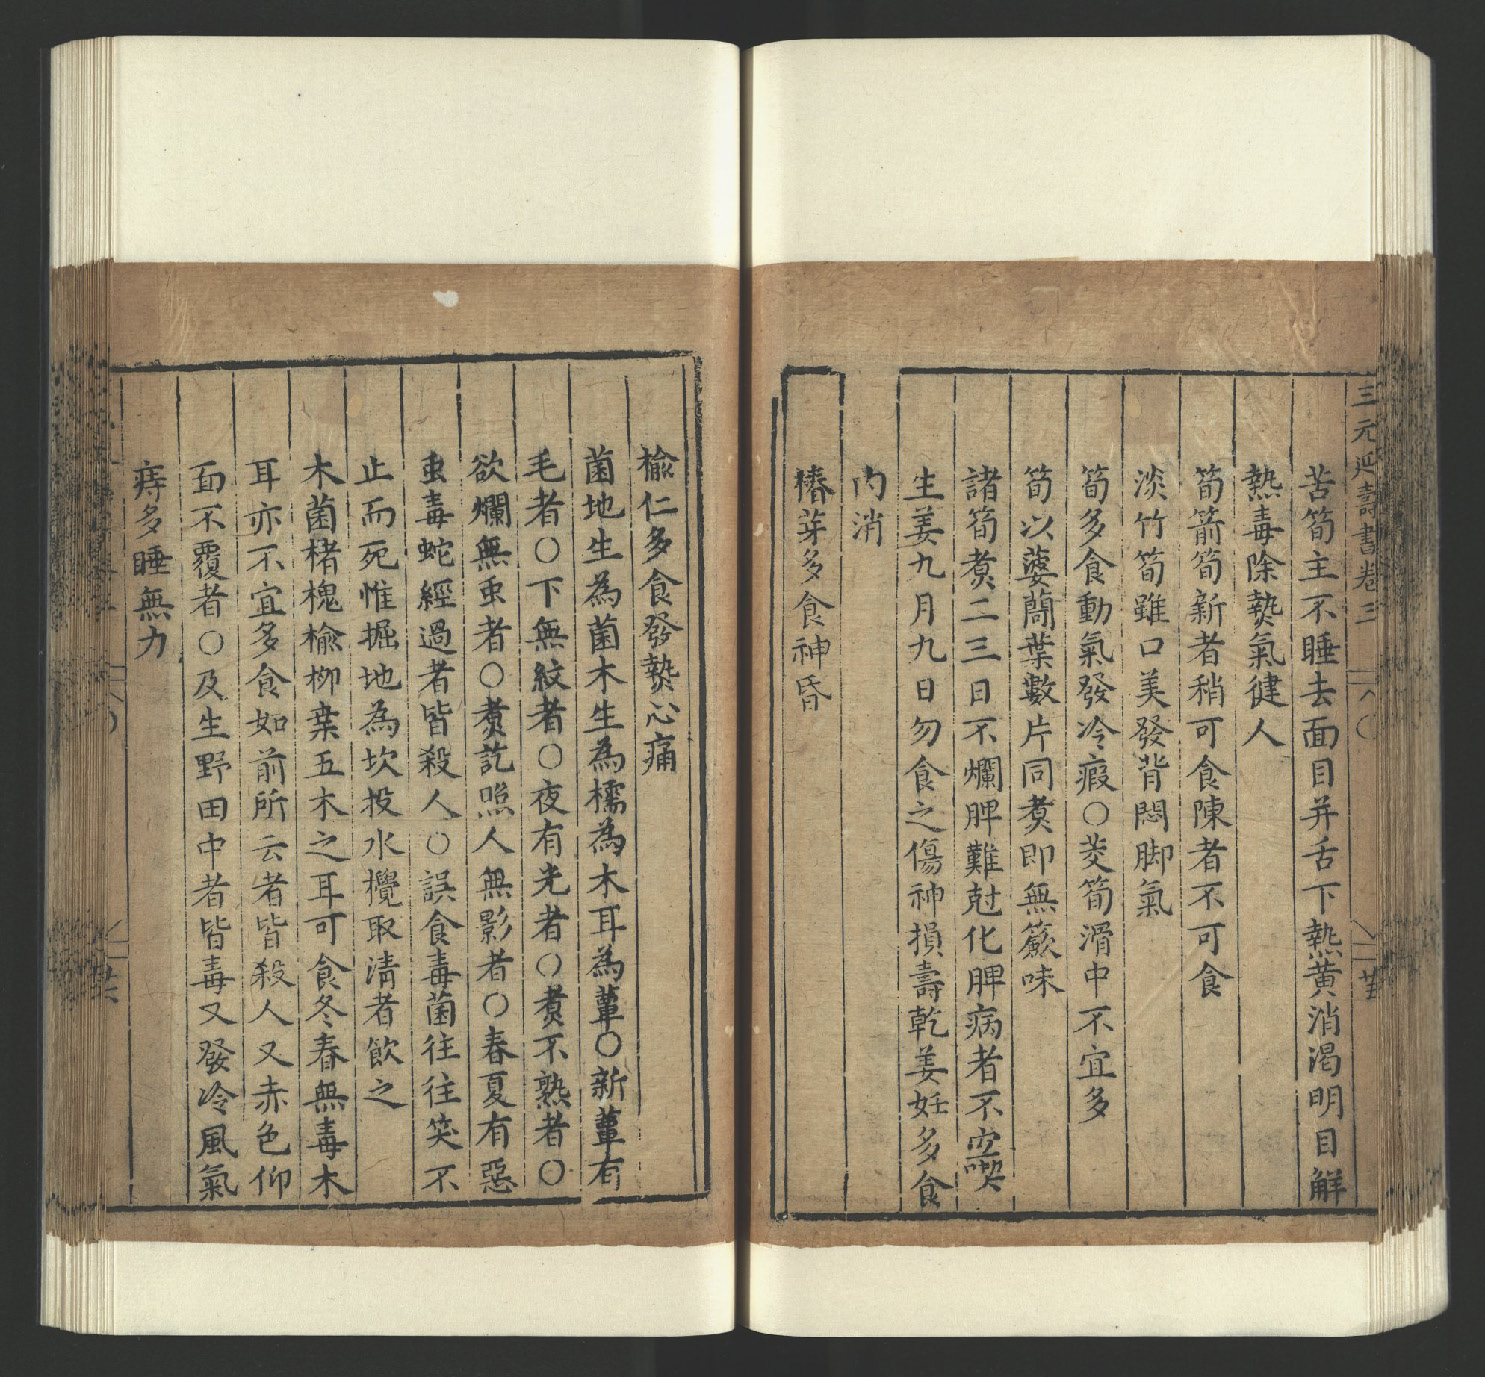 三元延壽書卷三
苦筍主不睡去面目并舌下熱黃消渴明目解
熱毒除熱氣健人
筍箭筍新者稍可食陳者不可食
淡竹筍雖口美發背悶脚氣
筍多食動氣發冷瘕○茭筍滑中不宜多
筍以薄荷葉數片同煑即無蘞味
諸筍煑二三日不爛脾難尅化脾病者不宜喫
生姜九月九日勿食之傷神損壽乾姜妊多食
内消
椿芽多食神昏
榆仁多食發熱心痛
菌地生為菌木生為檽為木耳為蕈○新蕈有
毛者○下無紋者○夜有光者○煑不熟者○
欲爛無虫者○煑訖照人無影者○春夏有惡
虫毒蛇經過者皆殺人○誤食毒菌往往笑不
止而死惟掘地為坎投水攪取清者飲之
木菌楮槐榆柳桑五木之耳可食冬春無毒木
耳亦不宜多食如前所云者皆殺人又赤色仰
面不覆者○及生野田中者皆毒又發冷風氣
痔多睡無力